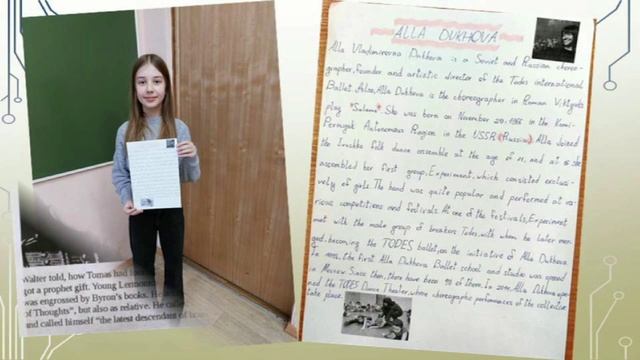 ALLA DUKHOVA
Alla Vladimirovna Dukhova is a Soviet and Russian choreo-
grapher, founder and artistic director of the Todes international
Ballet. Also, Alla Dukhova is the choreographer in Roman Viktyuk's
play "Salome". She was born on November 29, 1966 in the Komi-
Permyak Autonomous Region in the USSR (Russia). Alla joined
the Ivushka folk dance ensemble at the age of 11, and at 16 she
assembled her first group, Experiment, which consisted exclusi-
vely of girls. The band was quite popular and performed at va-
rious competitions and festivals. At one of the festivals, Experiment
met with the male group of breakers Todes, with whom he later mer-
ged, becoming the TODES ballet, on the initiative of Alla Dukhova.
In the first Alla Dukhova Ballet school and studio was opened
in Moscow. Since then, there have been of them. In Alla Dukhova ope-
ned the TODES Dance Theater, where choreographic performances of the collective
take place.
Walter told, how Tomas had
got a prophet gift. Young
was engrossed by Byron's books. He
of Thoughts", but also as relative. He
and called himself "the latest descendant of